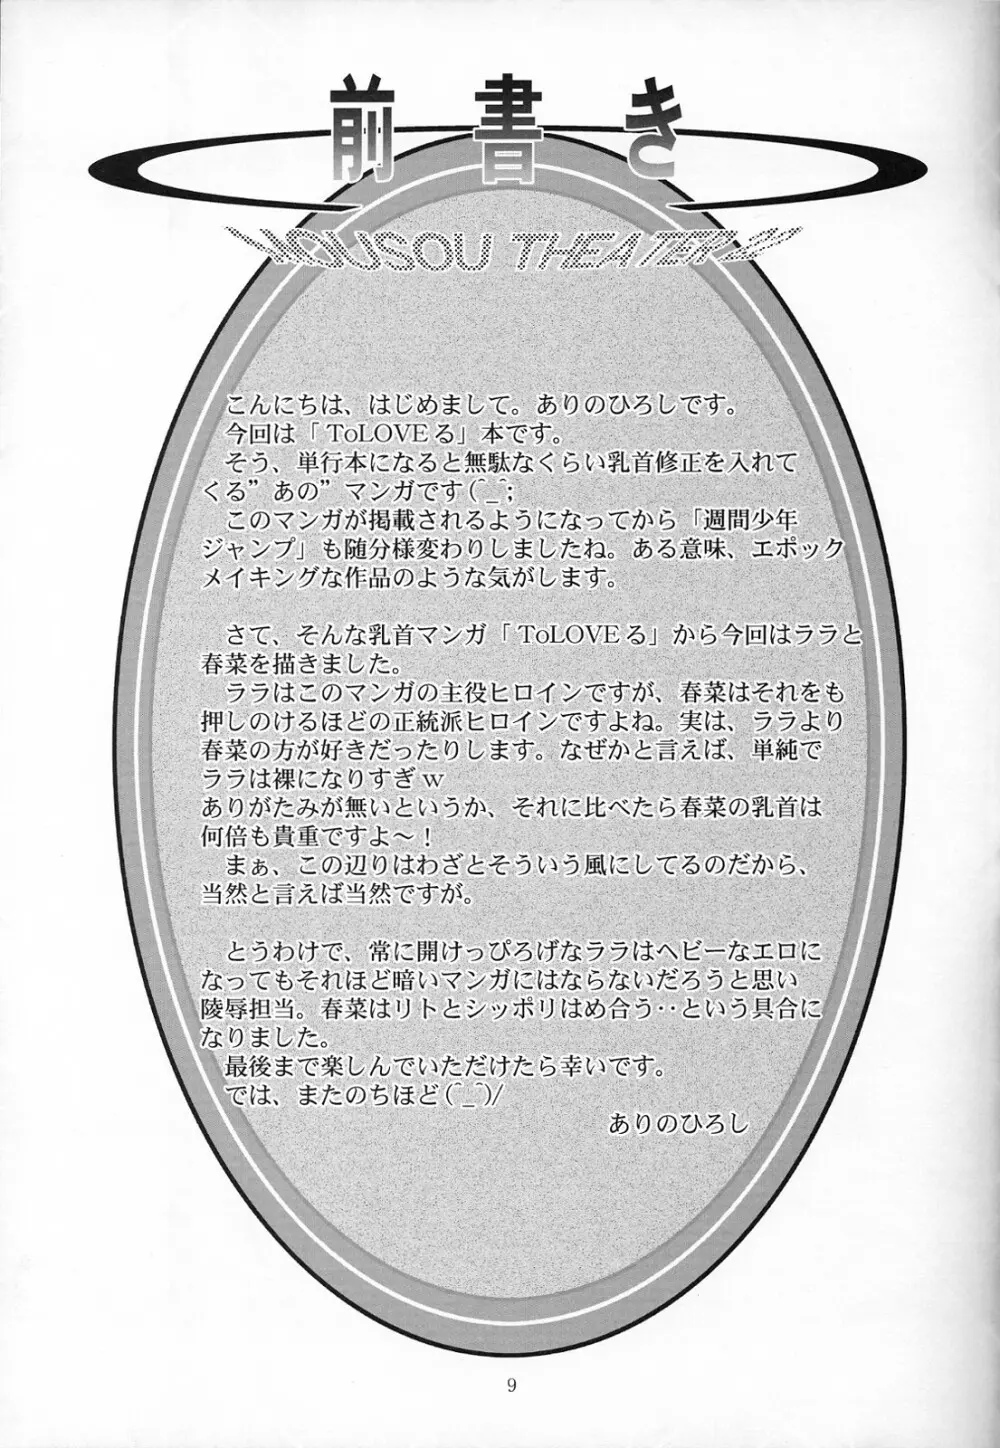 前書き
MOUSOU THEATER
こんにちは、はじめまして。ありのひろしです。
今回は「ToLOVEる」本です。
そう、単行本になると無駄なくらい乳首修正を入れて
くる”あの”マンガです(^_^;
このマンガが掲載されるようになってから「週間少年
ジャンプ」も随分様変わりしましたね。ある意味、エポック
メイキングな作品のような気がします。
さて、そんな乳首マンガ「ToLOVEる」から今回はララと
春菜を描きました。
ララはこのマンガの主役ヒロインですが、春菜はそれをも
押しのけるほどの正統派ヒロインですよね。実は、ララより
春菜の方が好きだったりします。なぜかと言えば、単純で
ララは裸になりすぎｗ
ありがたみが無いというか、それに比べたら春菜の乳首は
何倍も貴重ですよ～！
まぁ、この辺りはわざとそういう風にしてるのだから、
当然と言えば当然ですが。
とうわけで、常に開けっぴろげなララはヘビーなエロに
なってもそれほど暗いマンガにはならないだろうと思い
陵辱担当。春菜はリトとシッポリはめ合う‥という具合に
なりました。
最後まで楽しんでいただけたら幸いです。
では、またのちほど(^_^)/
ありのひろし
9